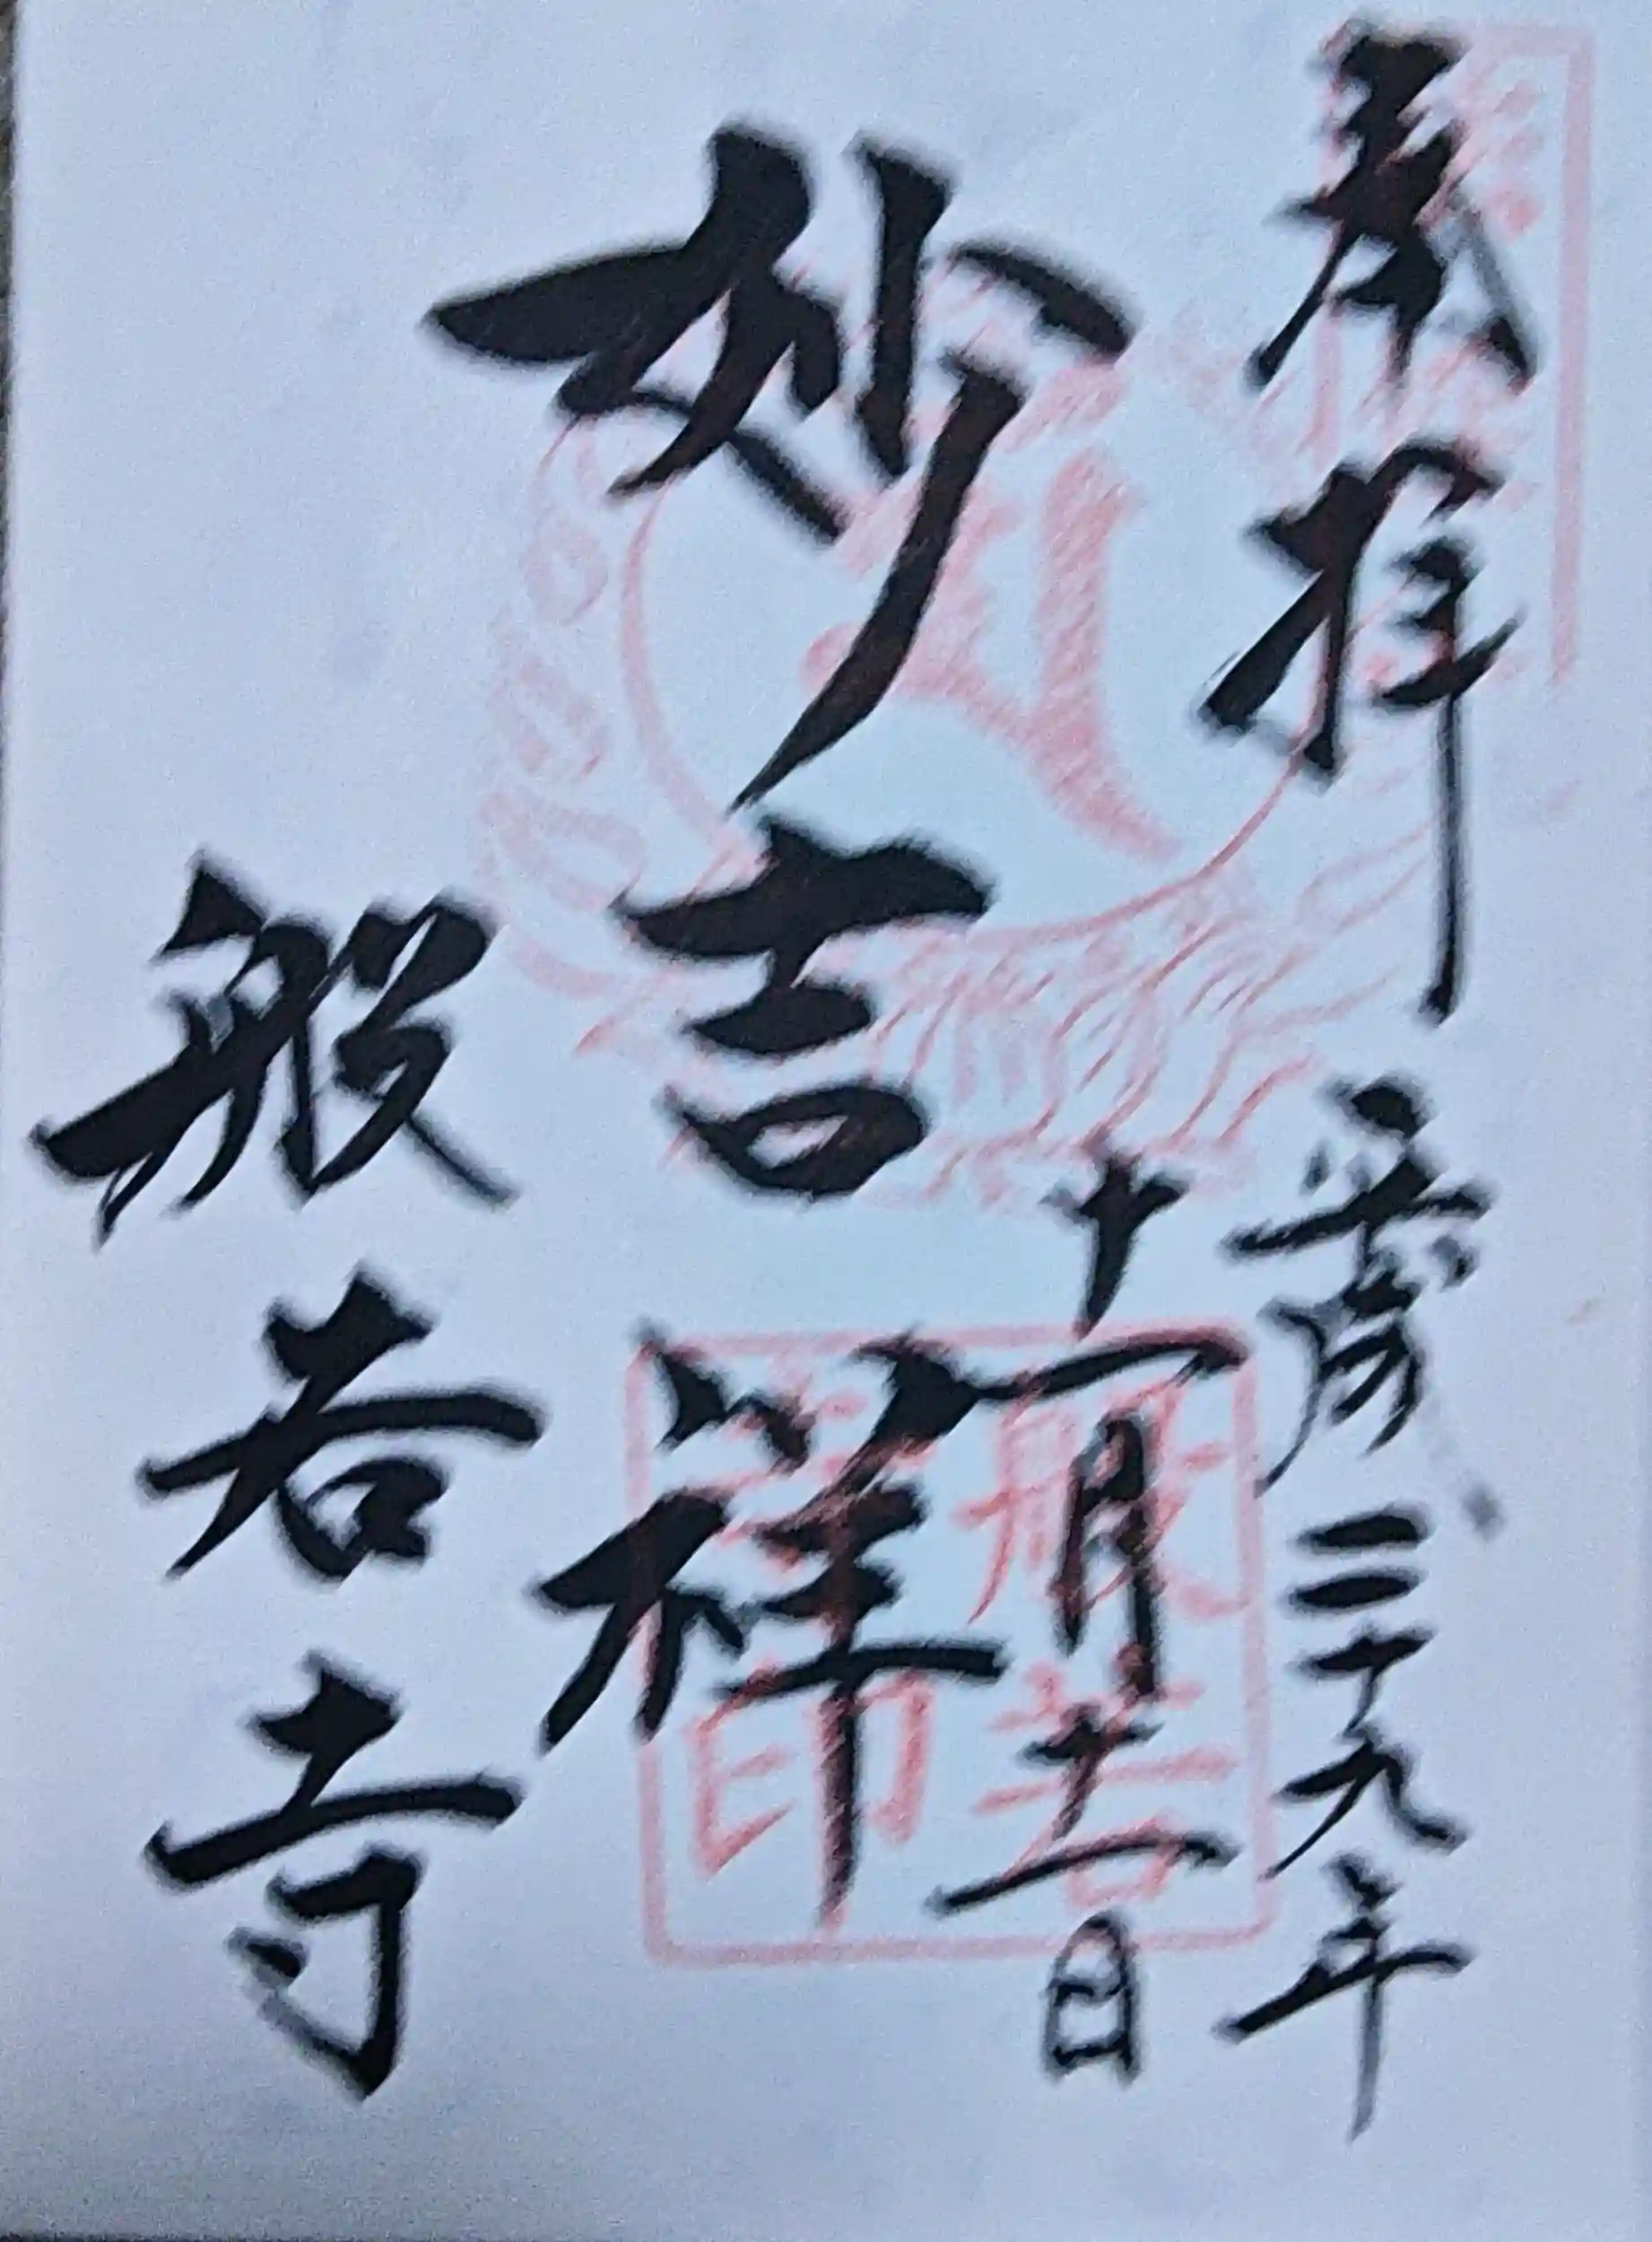 奉拝
平成二十九年
十一月十一日
妙吉祥
般若寺
般若
寺印